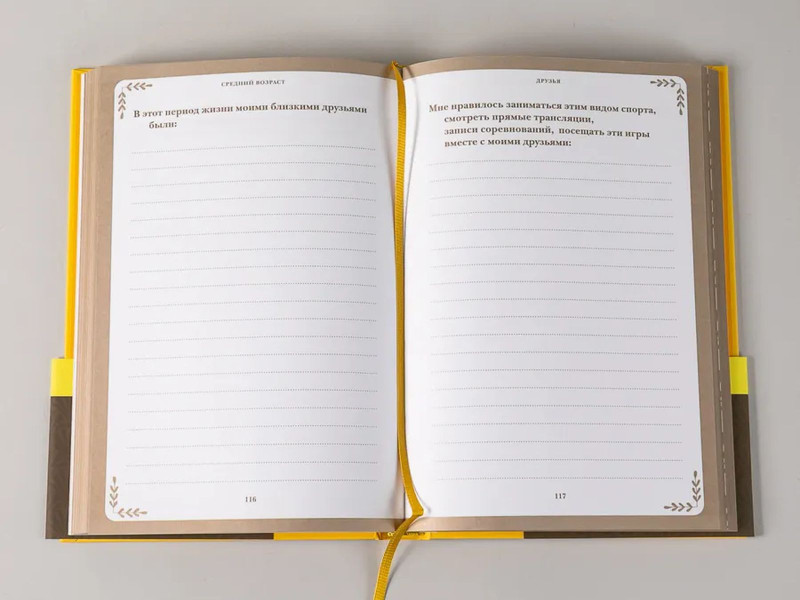 СРЕДНИЙ ВОЗРАСТ
В этот период жизни моими близкими друзьями
были:
116
ДРУЗЬЯ
Мне нравилось заниматься этим видом спорта,
смотреть прямые трансляции,
записи соревнований, посещать эти игры
вместе с моими друзьями:
117